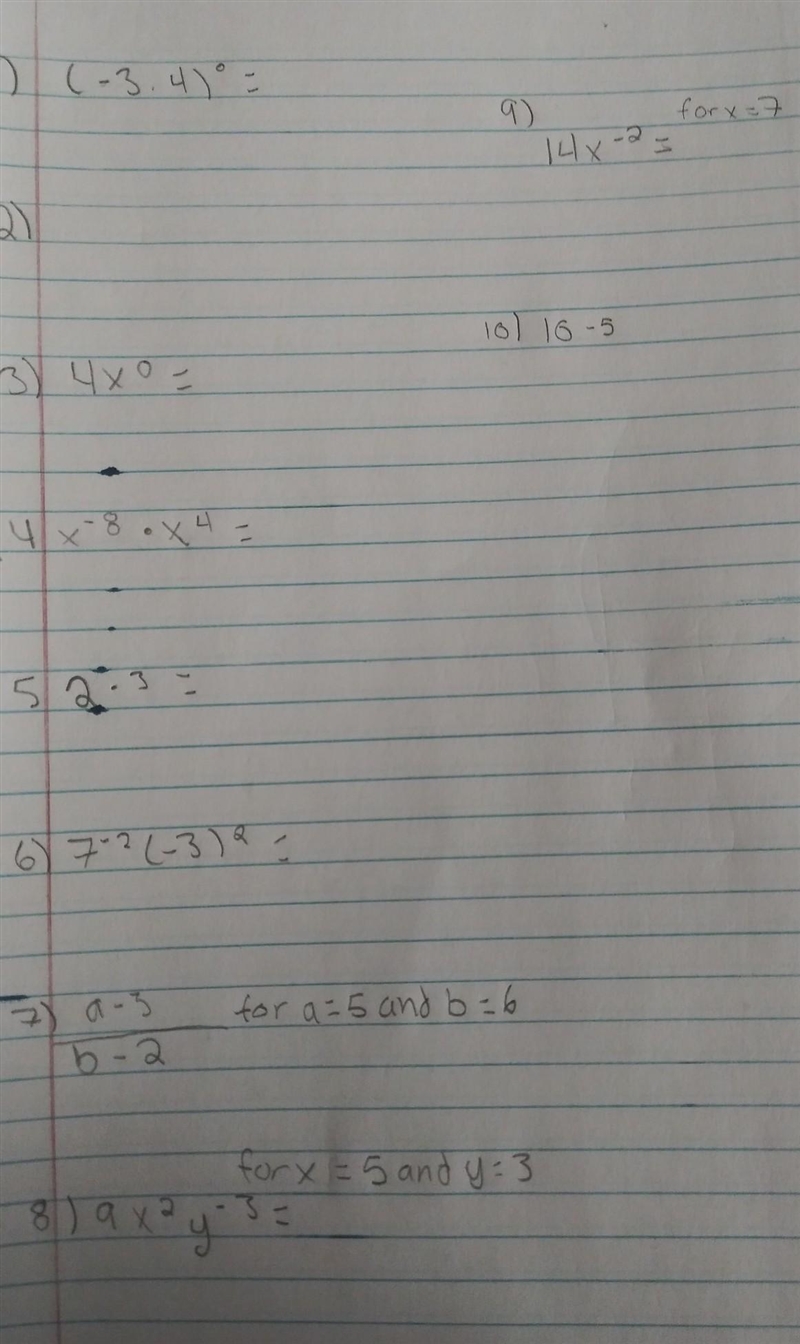 ) (-3.4)⁰ =
2)
3) 4x⁰ =
4 x⁻⁸ · x⁴ =
5 2⁻³ =
6) 7⁻² (-3)² =
7) a-3 for a=5 and b=6
b-2
for x = 5 and y=3
8) 9x²y⁻³ =
9) for x=7
14x⁻² =
10) 16 -5